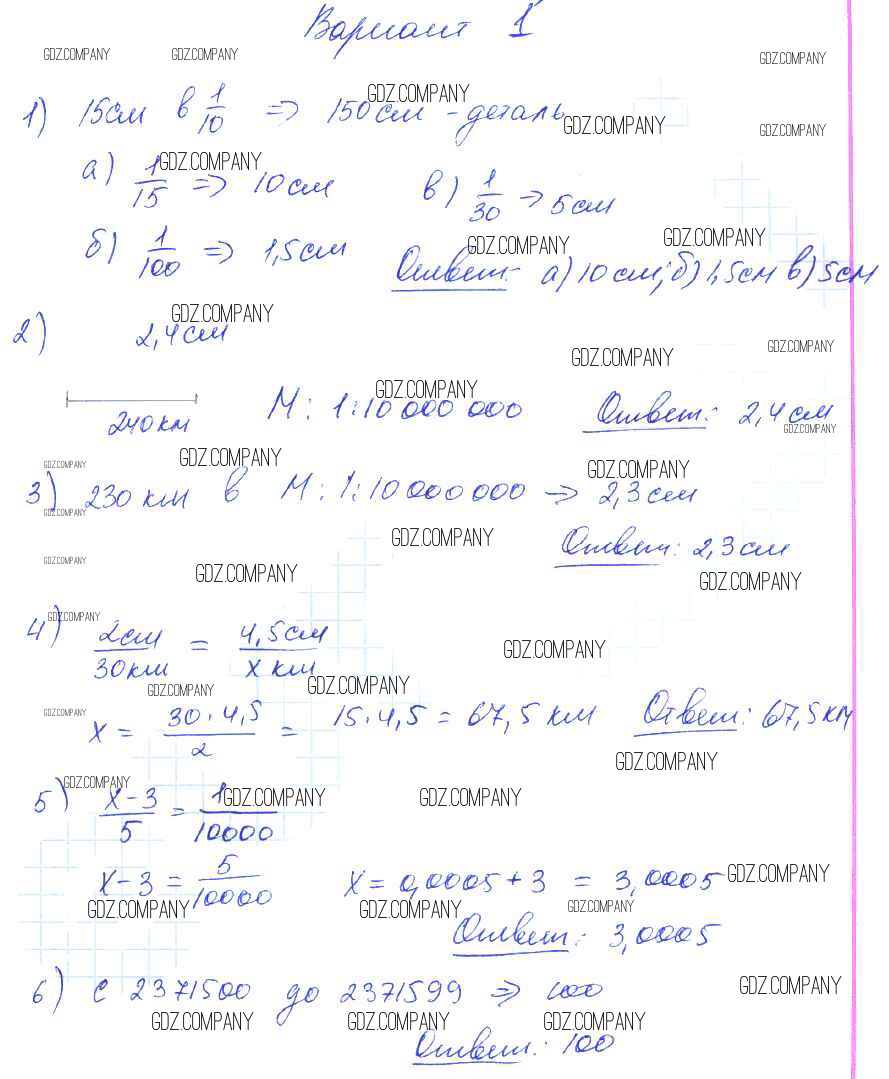 Вариант 1
GDZ.COMPANY GDZ.COMPANY GDZ.COMPANY
1) 15см в 1/10 => 150см - деталь
GDZ.COMPANY GDZ.COMPANY GDZ.COMPANY
а) 1/15 => 10см в) 1/30 -> 5см
GDZ.COMPANY
б) 1/100 => 1,5см Ответ: а) 10см; б) 1,5см в) 5см
GDZ.COMPANY GDZ.COMPANY
2) 2,4см
GDZ.COMPANY GDZ.COMPANY GDZ.COMPANY
240км М: 1:10 000 000 Ответ: 2,4см
GDZ.COMPANY GDZ.COMPANY
GDZ.COMPANY GDZ.COMPANY GDZ.COMPANY
3) 230 км в М: 1:10 000 000 -> 2,3см
GDZ.COMPANY GDZ.COMPANY
Ответ: 2,3см
GDZ.COMPANY GDZ.COMPANY GDZ.COMPANY
4) 2см/30км = 4,5см/x км
GDZ.COMPANY GDZ.COMPANY
GDZ.COMPANY GDZ.COMPANY
x = 30·4,5/2 = 15·4,5 = 67,5 км Ответ: 67,5км
GDZ.COMPANY GDZ.COMPANY
5) x-3/5 = 1/10000
GDZ.COMPANY GDZ.COMPANY GDZ.COMPANY
x-3 = 5/10000 x = 0,0005+3 = 3,0005
GDZ.COMPANY
GDZ.COMPANY GDZ.COMPANY GDZ.COMPANY
Ответ: 3,0005
6) с 2371500 до 2371599 => 100
GDZ.COMPANY
GDZ.COMPANY GDZ.COMPANY GDZ.COMPANY
Ответ: 100